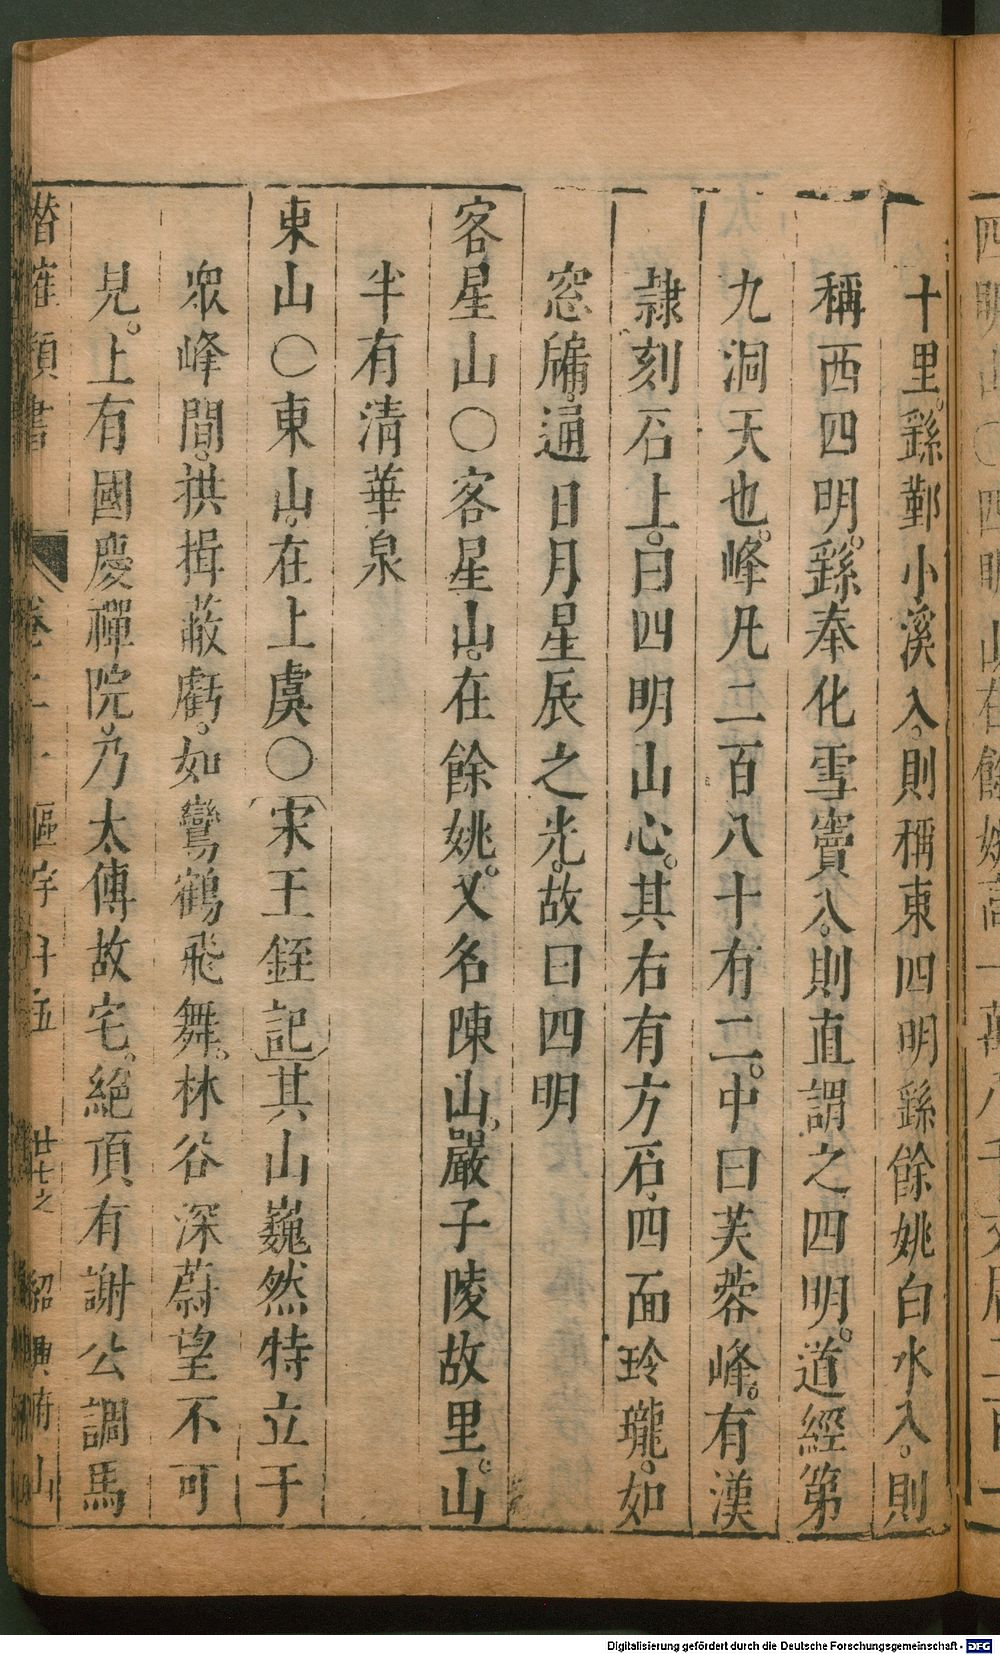 十里。繇鄞小溪入。則稱東四明繇餘姚白水入。則
稱西四明。繇奉化雪竇入。則直謂之四明。道經第
九洞天也。峰凡二百八十有二。中曰芙蓉峰。有漢
隷刻石上。曰四明山心。其右有方石。四面玲瓏。如
窓牖。通日月星辰之光。故曰四明
客星山〇客星山。在餘姚。又名陳山。嚴子陵故里。山
半有清華泉
東山〇東山。在上虞〇宋王銍記其山巍然特立于
衆峰間。拱揖蔽虧。如鸞鶴飛舞。林谷深蔚望不可
見。上有國慶禪院。乃太傅故宅。絕頂有謝公調馬
潛確類書 卷二十 區宇 五 廿七之 紹興府山
Digitalisierung gefördert durch die Deutsche Forschungsgemeinschaft - DFG